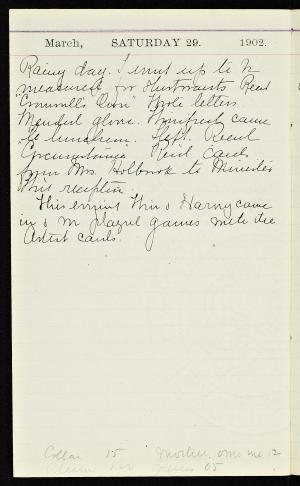 March, SATURDAY 29. 1902.
Rainy day. I went up to be
measured for shirtwaists Read
"Cromwell's Own" Wrote letters.
Mended glove. Winifred came
to luncheon. Slept. Read
Circumstance Rec'd cards
from Mrs. Holbrook to
reception.
This evening Win & Harry came
in & we played games with the
Artist cards.
Collar 15 Mother owes me 12
05